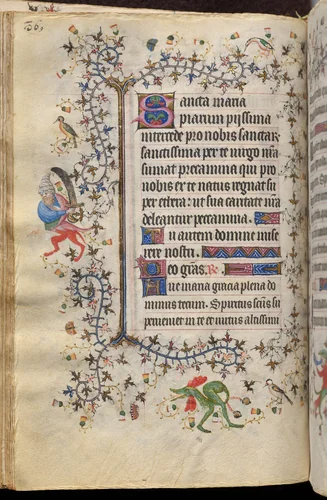 Sancta maria
piarum pijssima
intercede pro nobis sanctar
sanctissima per te virgo nra
sumat precamina qui pro
nobis ex te natus regnat su
per ethera: ut sua caritate nra
deleantur peccamina.
Tu autem domine mise
rere nostri.
Deo gras. R.
Aue maria gracia plena do
minus tecum. Spiritus scus su
perueniet in te et uirtus altissimi